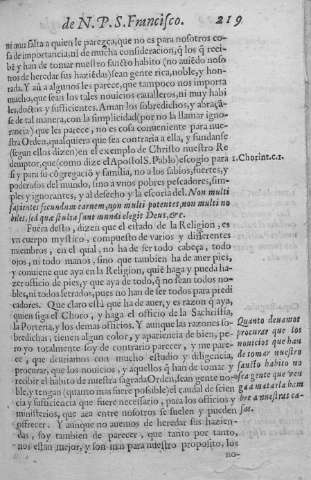 de N. P. S. Francisco. 219
ni aun falta a quien le parezca, que no es para nosotros co-
sa de importancia, ni de mucha consideracion, q̃ los q̃ reci-
bẽ y han de tomar nuestro sancto habito (no auiẽdo noso
tros de heredar sus haziẽdas) sean gente rica, noble, y hon-
rada. Y aũ a algunos les parece, que tampoco nos importa
mucho, que seãn los tales nouicios caualleros, ni muy habi
les, doctos y sufficientes. Aman los sobredichos, y abraçã-
se de tal manera, con la simplicidad (por no la llamar igno-
rancia) que les parece, no es cosa conueniente para nue-
stra Orden, qualquiera que sea contraria a ella, y fundanse
(segun ellos dizen) en el exemplo de Christo nuestro Re
demptor, que (como dize el Apostol S. Pablo) escogio para
si y para su cõgregació y familia, no a los sabios, fuertes, y
poderosos del mundo, sino a vnos pobres pescadores, sim-
ples y ignorantes, y al desecho y la escoria del. Non multi
sapientes secundum carnem, non multi potentes, non multi no
biles, sed quæ stulta sunt mundi elegit Deus, &c.
1. Chorint. c. 1.
Fuera desto, dizen que el estado de la Religion, es
vn cuerpo mystico, compuesto de varios y differentes
membros, en el qual, no ha de ser todo cabeça, todo
ojos, ni todo manos, sino que tambien ha de auer pies,
y conuiene que aya en la Religion, quiẽ haga y pueda ha-
zer officio de pies, y que aya de todo, q̃ no sean todos no-
bles, ni todos letrados, pues no han de ser todos para predi
cadores. Que claro està que ha de auer, y es razon q̃ aya,
quien siga el Choro, y haga el officio de la Sachristia,
la Porteria, y los demas officios. Y aunque las razones so-
bredichas, tienen algun color, y apariencia de bien, pe-
ro yo totalmente soy de contrario parecer, y me pare-
ce, que deuriamos con mucho estudio y diligencia,
procurar, que los nouicios, y aquellos q̃ han de tomar y
recibir el habito de nuestra sagrada Orden, sean gente no-
ble, y tengan (quanto mas fuere possible) el caudal de scien
cia y sufficiencia que fuere necessario, para los officios y
ministerios, que aca entre nosotros se suelen y pueden
offrecer. Y aunque no auemos de heredar sus hazien-
das, soy tambien de parecer, que tanto por tanto,
nos estan mejor, y son mas para nuestro proposito, los
no-
Quanto deuamos
procurar que los
nouicios que han
de tomar nuestro
sancto habito no
sea gente que ven
ga a matar la ham
bre a nuestras ca-
sas.